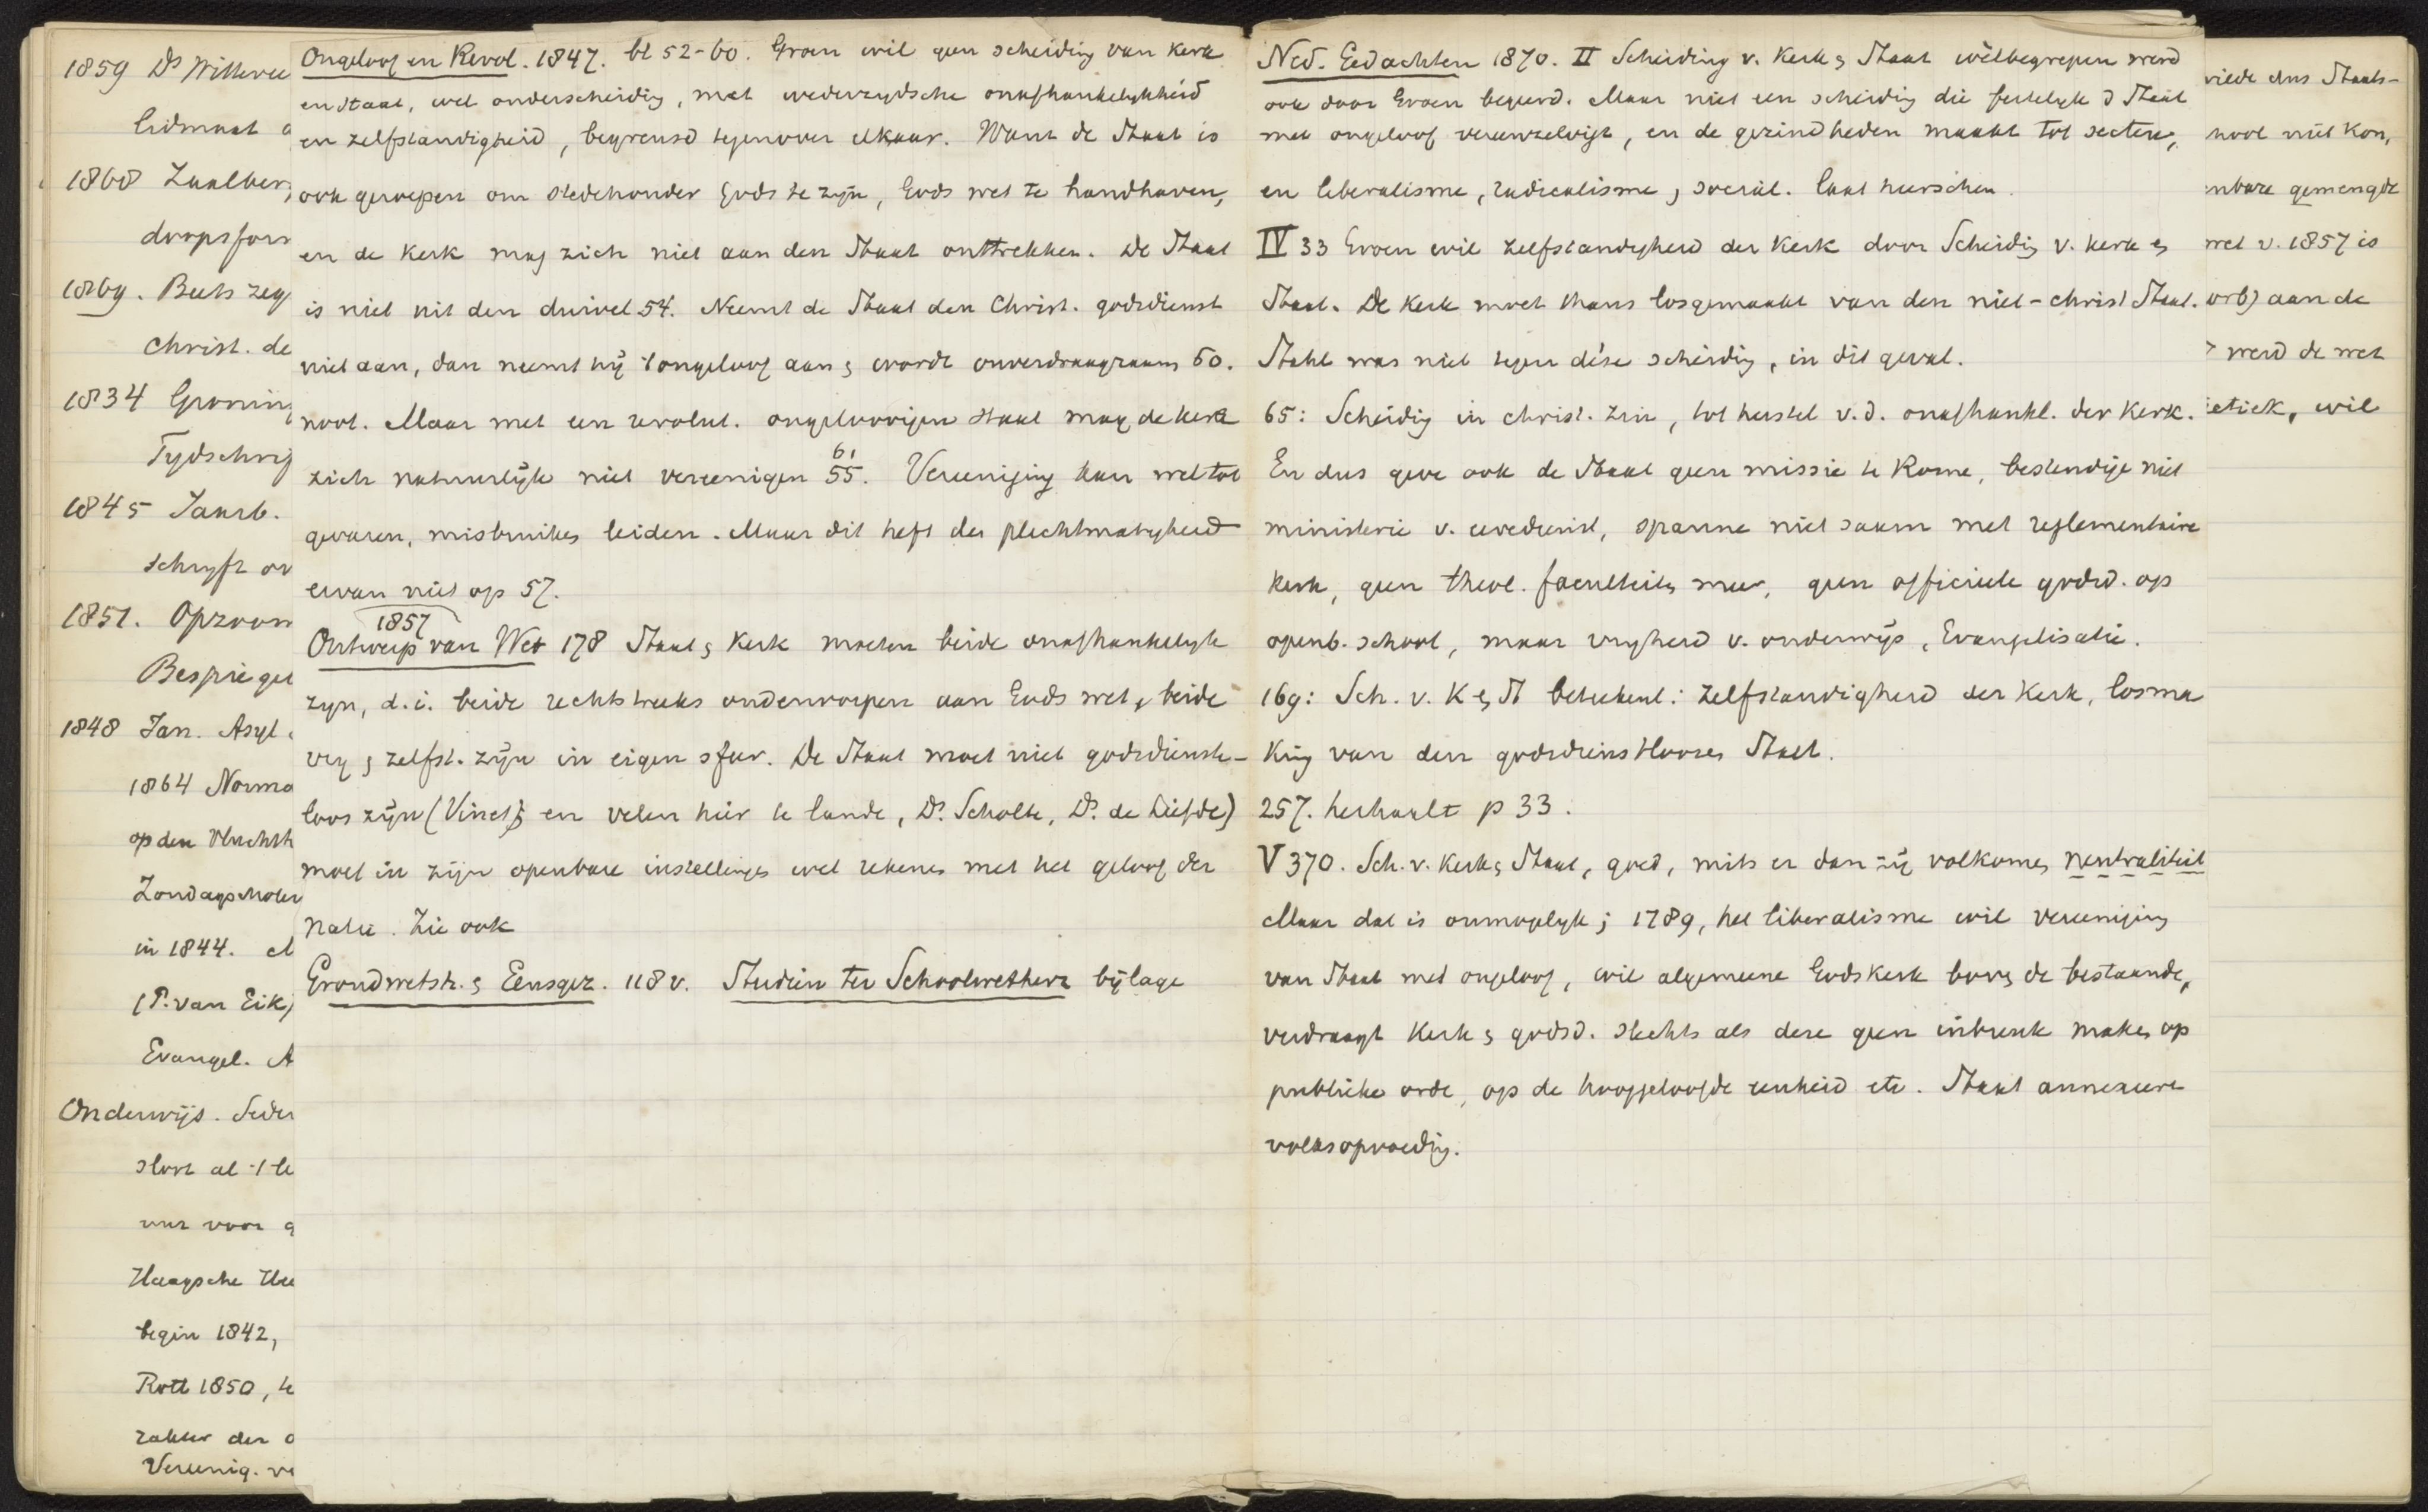 1859 Ds Witteve
lidmaat
1860 Zaalber
doopsfor
1869. Beets zeg
Christ. de
1834 Gronin
Tydschrif
1845 Jaarb.
schryft ov
1851. Opzoom
Bespiegel
1848 Jan. Asyl
1864 Norma
op den Vluchth
Zondagscholen
in 1844.
(P. van Eik,
Evangel. A
Onderwijs. Seder
slore al 't le
uur voor g
Haagsche
begin 1842,
Rott 1850, te
zakter der
Vereenig. ve
Ongeloof en Revol. 1847. bl 52-60. Groen wil geen scheiding van kerk
en staat, wel onderscheidig, met wederzydsche onafhankelykheid
en zelfstandigheid, begrensd tegenover elkaar. Want de Staat is
ook geroepen om stedehouder Gods te zijn, Gods wet te handhaven,
en de Kerk mag zich niet aan den Staat onttrekken. De Staat
is niet uit den duivel 54. Neemt de Staat den Christ. godsdienst
niet aan, dan neemt hij 't ongeloof aan & wordt onverdraagzaam 60.
noot. Maar met een revolut. ongeloovigen staat mag de kerk
zich natuurlijk niet vereenigen 55. 61 Vereeniging kan wel tot
gevaren, misbruiken leiden. Maar dit heft de plichtmatigheid
ervan niet op 57.
1857
Ontwerp van Wet 178 Staat & Kerk moeten beide onafhankelyk
zyn, d.i. beide rechtstreeks onderworpen aan Gods wet, beide
vry & zelfst. zijn in eigen sfeer. De Staat moet niet godsdienst-
loos zijn (Vinet & en velen hier te lande, Ds. Scholte, Ds. de Liefde)
moet in zijn openbare instellingen wel rekenen met het geloof der
natie. Zie ook
Grondwetsh. & Eensgez. 118 v. Studien ter Schoolwetherz bijlage
Ned. Gedachten 1870. II Scheiding v. Kerk & Staat wèlbegrepen werd
ook door Groen begeerd. Maar niet een scheidig die feitelyk d Staat
met ongeloof vereenzelvigt, en de gezindheden maakt tot secten,
en liberalisme, radicalisme, social. laat heerschen.
IV 33 Groen wil zelfstandigheid der Kerk door Scheidig v. kerk en
Staat. De Kerk moet thans losgemaakt van den niet-christ Staat.
Stahl was niet tegen déze scheidig, in dit geval.
65: Scheidig in christ. zin, tot herstel v.d. onafhankl. der Kerk.
En dus geve ook de Staat geen missie te Rome, bestendige niet
ministerie v. eeredienst, spanne niet saam met reglementaire
kerk, geen theol. faculteiten meer, geen officieele godsd. op
openb. school, maar vryheid v. onderwijs, Evangelisatie.
169: Sch. v. K & St beteekent: zelfstandigheid der Kerk, losma
king van den godsdiensttloozen Staat.
257. herhaalt p 33.
V 370. Sch. v. Kerk & Staat, goed, mits er dan zij volkomen neutraliteit
Maar dat is onmogelyk; 1789, het liberalisme wil vereeniging
van Staat met ongeloof, wil algemeene Godskerk boven de bestaande,
verdraagt Kerk & godsd. slechts als deze geen inbreuk maken op
publieke orde, op de hooggeloofde eenheid etc. Staat annexeere
volksopvoedig.
riede dus Staats-
nool niet kon,
nbare gemengde
wet v. 1857 is
orb) aan de
werd de wet
etiek, wil